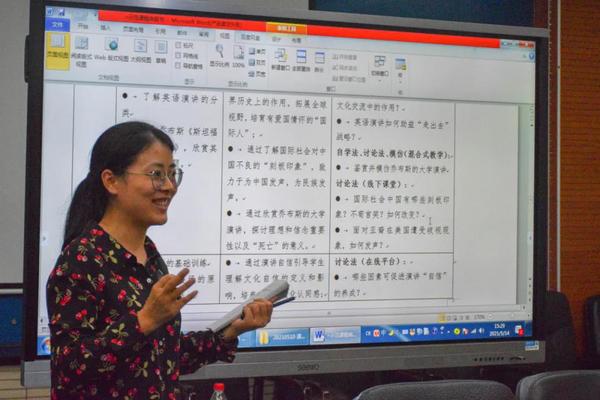 Microsoft Word
文件
开始
插入
页面布局
引用
邮件
审阅
视图
百度网盘
设计
布局
页面视图
阅读版式视图
Web 版式视图
大纲视图
草稿
标尺
网格线
导航窗格
显示比例
100%
单页
双页
页宽
新建窗口
全部重排
拆分
切换窗口
宏
文档视图
显示
显示比例
窗口
● 了解英语演讲的分类。
布斯《斯坦福
欣赏英
的基础训练
的原
界历史上的作用,拓展全球
视野,培育有爱国情怀的“国
际人”;
● 通过了解国际社会对中
国不良的“刻板印象”,致
力于为中国发声,为民族发
声。
● 通过欣赏乔布斯的大学
演讲,探讨理想和信念重要
性以及“死亡”的意义。
● 通过演讲自信引导学生
理解文化自信的定义和影
响,培
化认同感;
文化交流中的作用?
● 英语演讲如何助益“走出去”
战略?
自学法、讨论法、模仿(混合式教学):
● 鉴赏并模仿乔布斯的大学演讲。
讨论法(线下课堂):
● 国际社会中国有哪些刻板印
象?不苟言笑?如何改变?
● 面对亚裔在美国遭受歧视现
象,如何发声?
讨论法(在线平台):
● 哪些因素可促进演讲“自信”
的养成?
170%
20210510
15:25
2021/5/14
seewo